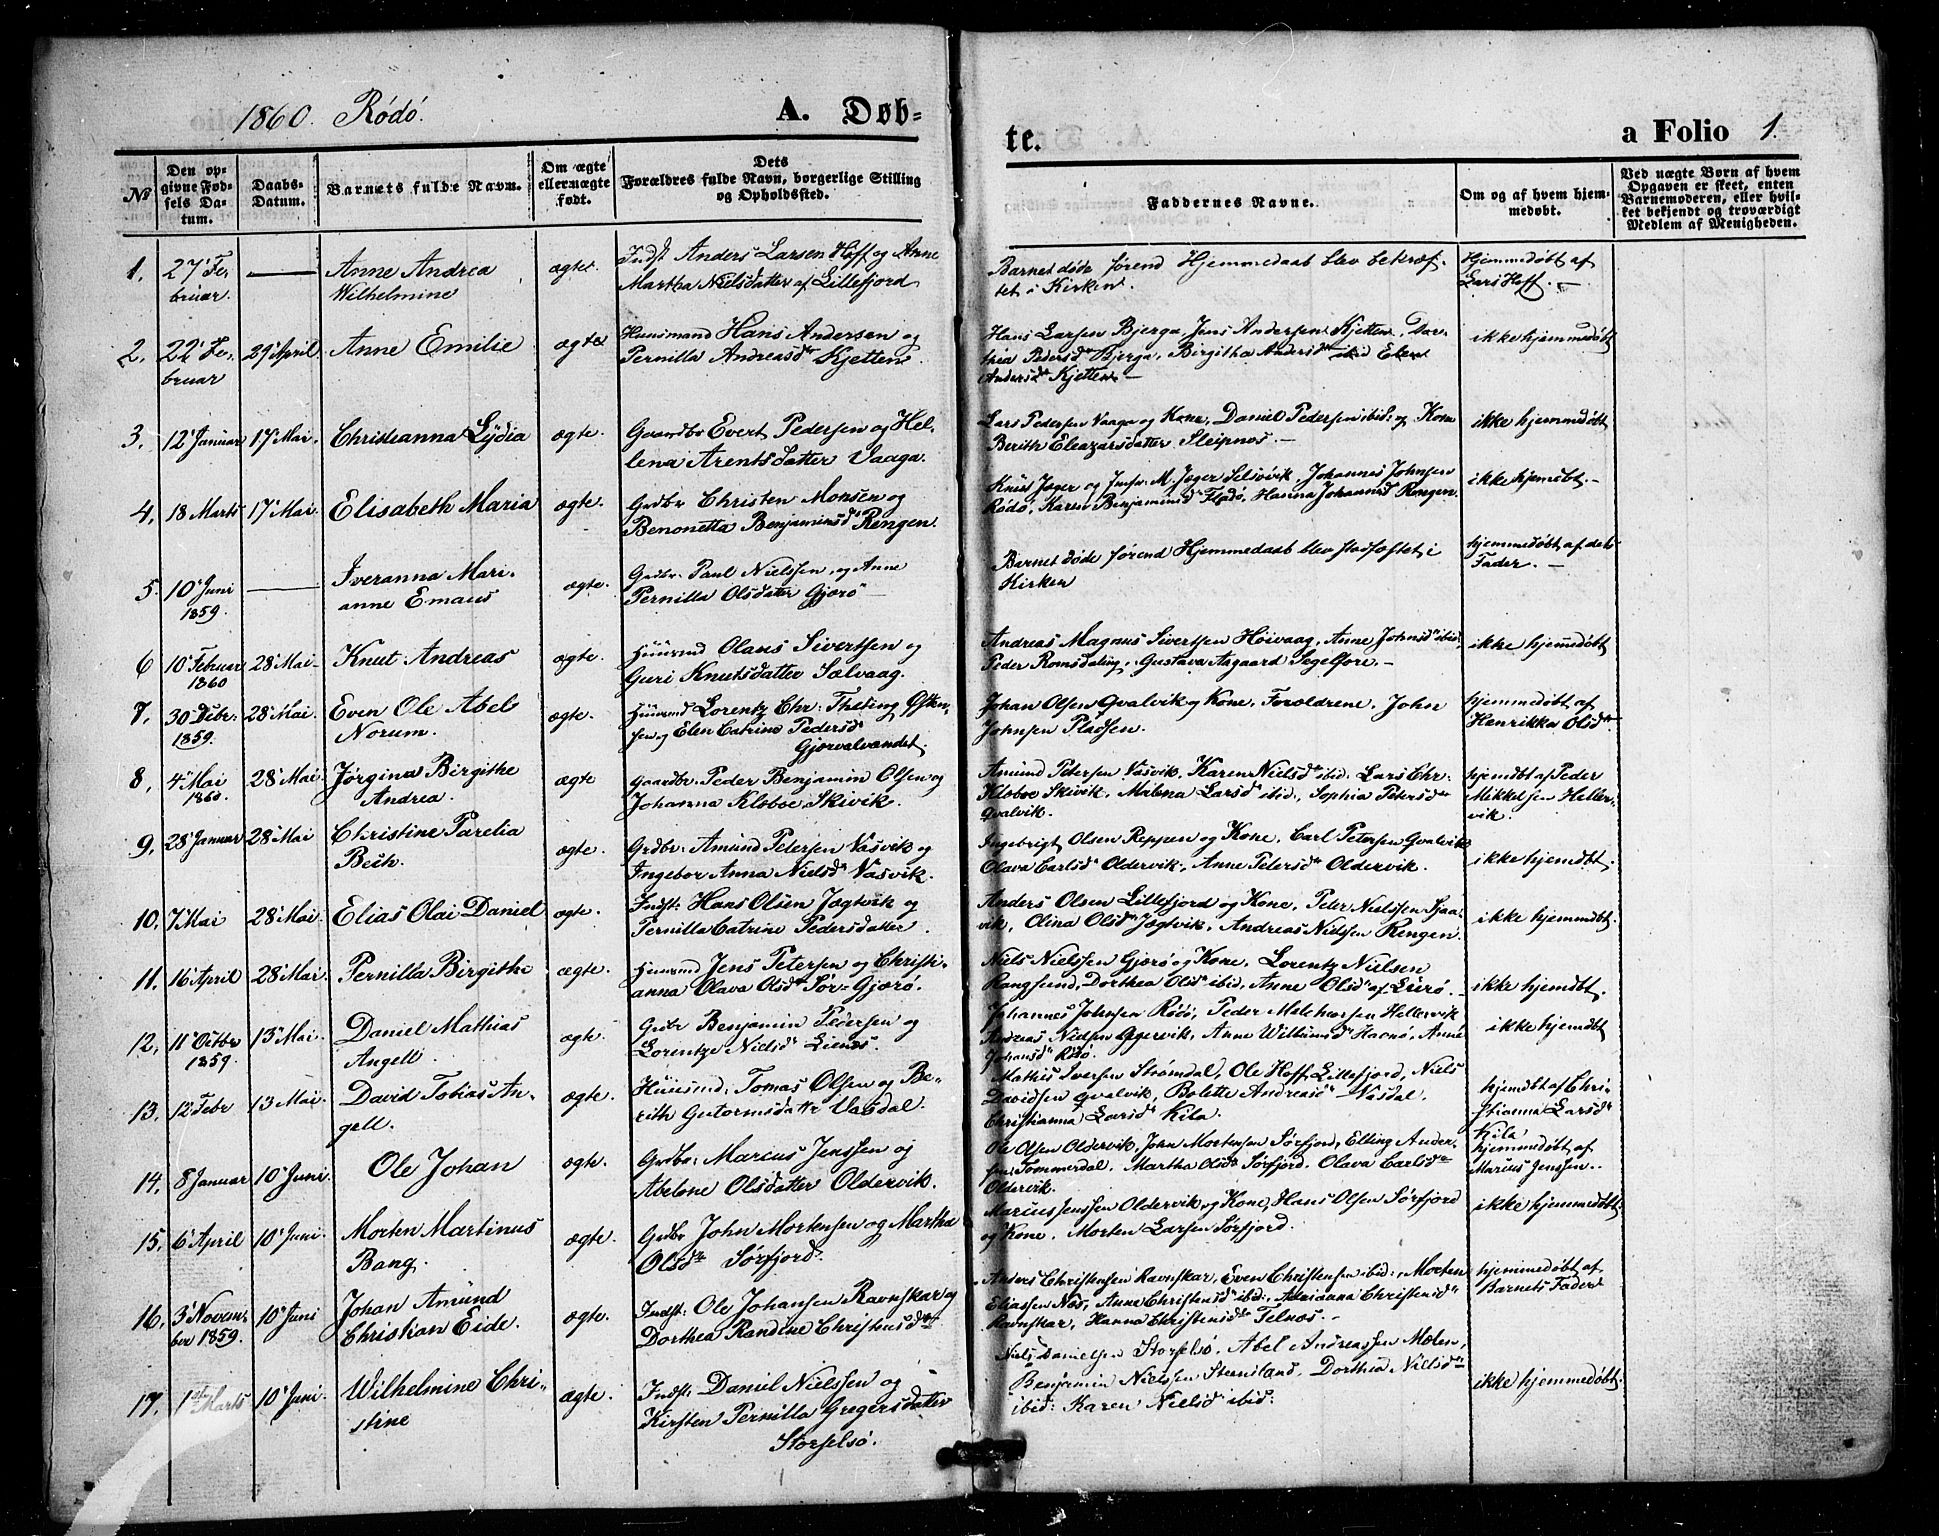 1860. Rödö.
A. Døb-
te.
a Folio 1.
№
Den op-
givne Fød-
sels Da-
tum.
Daabs-
Datum.
Barnets fulde Navn.
Om ægte
eller uægte
født.
Dets
Forældres fulde Navn, borgerlige Stilling
og Opholdssted.
Faddernes Navne.
Om og af hvem hjem-
medøbt.
Ved uægte Børn af hvem
Opgaven er skeet, enten
Barnemoderen, eller hvil-
ket bekjendt og troværdigt
Medlem af Menigheden.
1. 27' Fe-
bruar.
Anne Andrea
Wilhelmine
ægte.
Indst Anders Larsen Hoff og Anne
Martha Nielsdatter af Lillefjord
Barnet døde førend Hjemmedaab blev bekræf-
tet i Kirken.
Hjemmedøbt af
Lars Hoff. —
2. 22' Fe-
bruar
29' April.
Anne Emilie
ægte
Huusmand Hans Andersen og
Pernilla Andreasd Kjetten
Hans Larsen Bjerga, Jens Andersen Kjetten, Dor-
thea Pedersd Bjerga, Birgitha Andersd ibid Elen
Andersd Kjetten —
ikke hjemmedøbt
3. 12' Januar 17' Mai.
Christianna Lydia
ægte.
Gaardbr Evert Pedersen og Hel-
lena Arentsdatter Vaaga.
Lars Pedersen Vaaga og Kone, Daniel Pedersen ibid: og Kone
Berith Eleazarsdatter Sleipnes. —
ikke hjemmedøbt
4. 18 Marts 17' Mai.
Elisabeth Maria
ægte.
Grdbr Christen Monsen og
Benonetta Benjaminsd Rengen
Knut Jager og Jmfr. M. Jager Selsøvik, Johannes Johnsen
Rödö, Karen Benjaminsd Flodö, Hanna Johannsd Rengen.
ikke hjemøbt. —
5. 10' Juni
1859.
Iveranna Mari-
anne Emaus
ægte.
Grdbr. Paul Nielssen, og Anne
Pernilla Olsdatter Gjærø
Barnet døde førend Hjemmedaab blev stadfæstet i
Kirken
hjemmedøbt af dets
Fader. —
6 10' Febuar
1860
28' Mai
Knut Andreas
ægte.
Huusmd Olaus Sivertsen og
Guri Knutsdatter Sælvaag.
Andreas Magnus Sivertsen Höivaag, Anne Johnsd ibid,
Peder Romsdaling, Gustava Aagaard Segelfore. —
ikke hjemmedøbt
7. 30' Debr.
1859.
28' Mai.
Even Ole Abel
Norum.
ægte.
Huusmd Lorentz Chr: Theting Østen-
sen og Elen Catrine Pedersd
Gjervalvandet.
Johan Olsen Qvalvik og Kone, Forældrene, John
Johnsen Pladsen.
hjemmedøbt af
Henrikka Olsd
8. 4' Mai
1860.
28' Mai.
Jørgina Birgithe
Andrea.
ægte
Gaardbr. Peder Benjamin Olsen og
Johanna Kloboe Skivik.
Amund Petersen Vasvik, Karen Nielsd ibid: Lars Chr:
Kloboe Skivik, Malena Larsd ibid., Sophia Petersd
Qvalvik.
hjemdøbt af Peder
Mikkelsen Heller-
vik.
9. 28' Januar 28' Mai
Christine Parelia
Beth.
ægte.
Grdbr. Amund Petersen Vasvik og
Ingebor Anna Nielsd Vasvik.
Ingebrigt Olsen Reppen og Kone, Carl Petersen Qvalvik
Olava Carlsd Oldervik, Anne Petersd Oldervik.
ikke hjemdøbt.
10. 7' Mai 28' Mai.
Elias Olai Daniel
ægte.
Indst: Hans Olsen Jægtvik og
Pernilla Catrine Pedersdatter.
Anders Olsen Lillefjord og Kone, Peter Nielssen Sjaa-
vik, Olina Olsd Jægtvik, Andreas Nielsen Rengen.
ikke hjemmdøbt.
11. 16' April 28' Mai
Pernilla Birgithe
ægte.
Huusmd Jens Petersen og Christi-
anna Olava Olsd Sør-Gjærø.
Niels Nielssen Gjærø og Kone, Lorentz Nielsen
Rangsund, Dorthea Olsd ibid, Anne Olsd af Lurø.
ikke hjemdøbt.
12. 11' Octbr
1859.
13' Mai.
Daniel Mathias
Angell.
ægte.
Grdbr Benjamin Pedersen og
Lorentze Nielsd Lienæs.
Johannes Johnsen Rödö, Peder Melchorsen Hellervik
Andreas Nielsen Aggervik, Anne Wilhumsd Havnö, Anne
Johansd Rödö.
ikke hjemdøbt
13. 12' Febr 13' Mai.
David Tobias An-
gell.
ægte.
Huusmd: Tomas Olsen og Be-
rith Gutormsdattr Vasdal.
Mathis Iversen Strømdal, Ole Hoff Lillefjord, Niels
Davidsen Qvalvik, Bolette Andreasd Vasdal.
Christianna Larsd Kila.
hjemdøbt af Chri-
stianna Larsd
Kila
14. 8' Januar 10' Juni
Ole Johan
ægte.
Grdbr: Marcus Jenssen og
Abelone Olsdatter Oldervik.
Ole Olsen Oldervik, John Mortensen Sørfjord, Elling Ander-
sen Tommerdal, Martha Olsd Sørfjord, Olava Carlsd
Oldervik.
hjemmedøbt af
Marius Jenssen.
15. 6' April 10' Juni.
Morten Martinus
Bang.
ægte.
Grdbr John Mortensen og Martha
Olsd Sørfjord.
Marius Jenssen Oldervik og Kone, Hans Olsen Sørfjord
og Kone, Morten Larsen Sørfjord.
ikke hjemmedøbt.
16. 3' Novem-
ber 1859.
10' Juni
Johan Amund
Christian Eide.
ægte.
Indst: Ole Johansen Ravnskar og
Dorthea Randine Christensd
Anders Christensen Ravnskar, Even Christensen ibid:, Morten
Eliassen Næs, Anne Christensd ibid:, Adrianna Christensd
Ravnskar, Hanna Christensd Telnes. —
hjemmedøbt af
Barnets Fader
17. 1ste Marts 10' Juni.
Wilhelmine Chri-
stine
ægte.
Indst: Daniel Nielssen og
Kirsten Pernilla Gregersdatter
Storselsø.
Niels Danielsen Storselsö, Abel Andreassen Melen,
Benjamin Nielssen Stensland, Dorthea Nielsd
ibid: Karen Nielsd ibid:
ikke hjemmedøbt